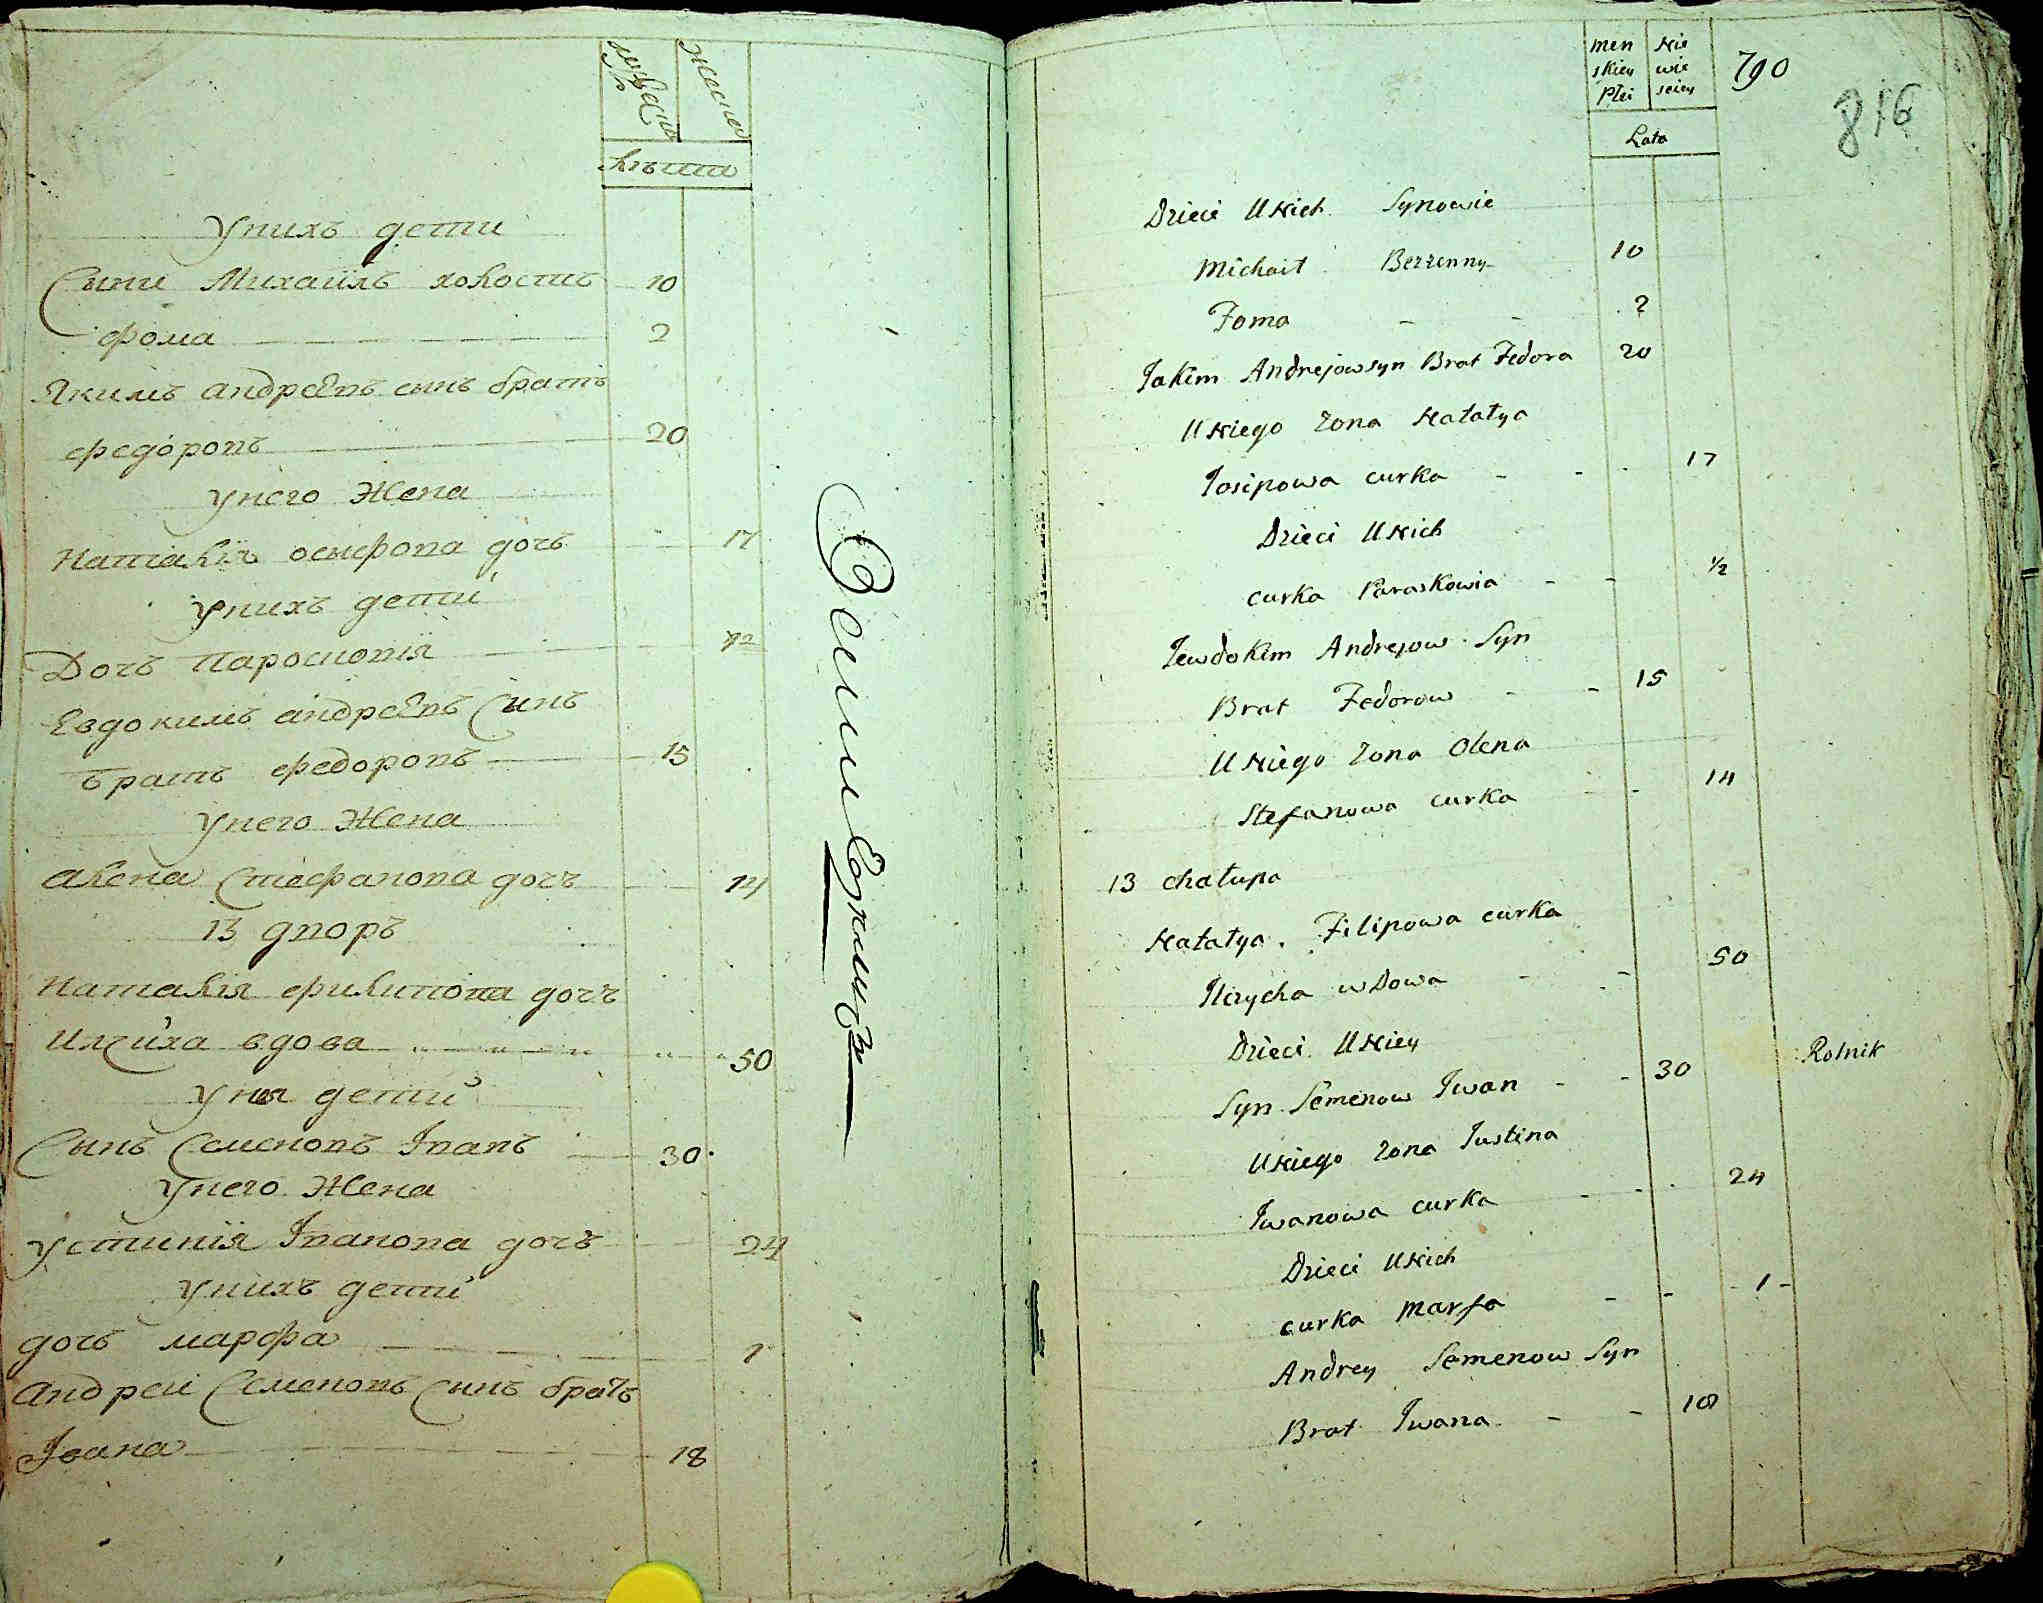 мужеска
женска
Лѣта
У нихъ дети
Сыни Михаилъ холостъ 10
фома 2
Якимъ андреевъ сынъ братъ
федоровъ 20
У него Жена
Наталія осифова дочь 17
У нихъ дети
Дочь Паросковія 1/2
Евдокимъ андреевъ Синъ
братъ федоровъ 15
У него Жена
алена Стефанова дочь 14
13 дворъ
Наталія филипова дочь
Илчиха вдова 50
У ней дети
Сынъ Семеновъ Іванъ 30
У него Жена
Устинія Іванова дочь 24
У нихъ дети
дочь марфа 1
андреи Семеновъ Синъ братъ
Івана 18
Земли Езницъ
men skiey Płci
Nie wie sciey
790
816
Lata
Dzieci U Nich Synowie
Michait Bezzenny 10
Foma - - 2
Jakim Andrejow syn Brat Fedora 20
U Niego Zona Natatya
Josipowa curka - - 17
Dzieci U Nich
curka Paraskowia - - 1/2
Jewdokim Andrejow Syn
Brat Fedorow - - 15
U Niego Zona Olena
Stefanowa curka - 14
13 chatupa
Natatya Filipowa curka
Ilczycha wdowa - - 50
Dzieci U Niey
Syn Semenow Iwan - - 30 Rolnik
U Niego Zona Justina
Iwanowa curka - - 24
Dzieci U Nich
curka Marfa - - 1 -
Andrey Semenow Syn
Brat Iwana - - 18